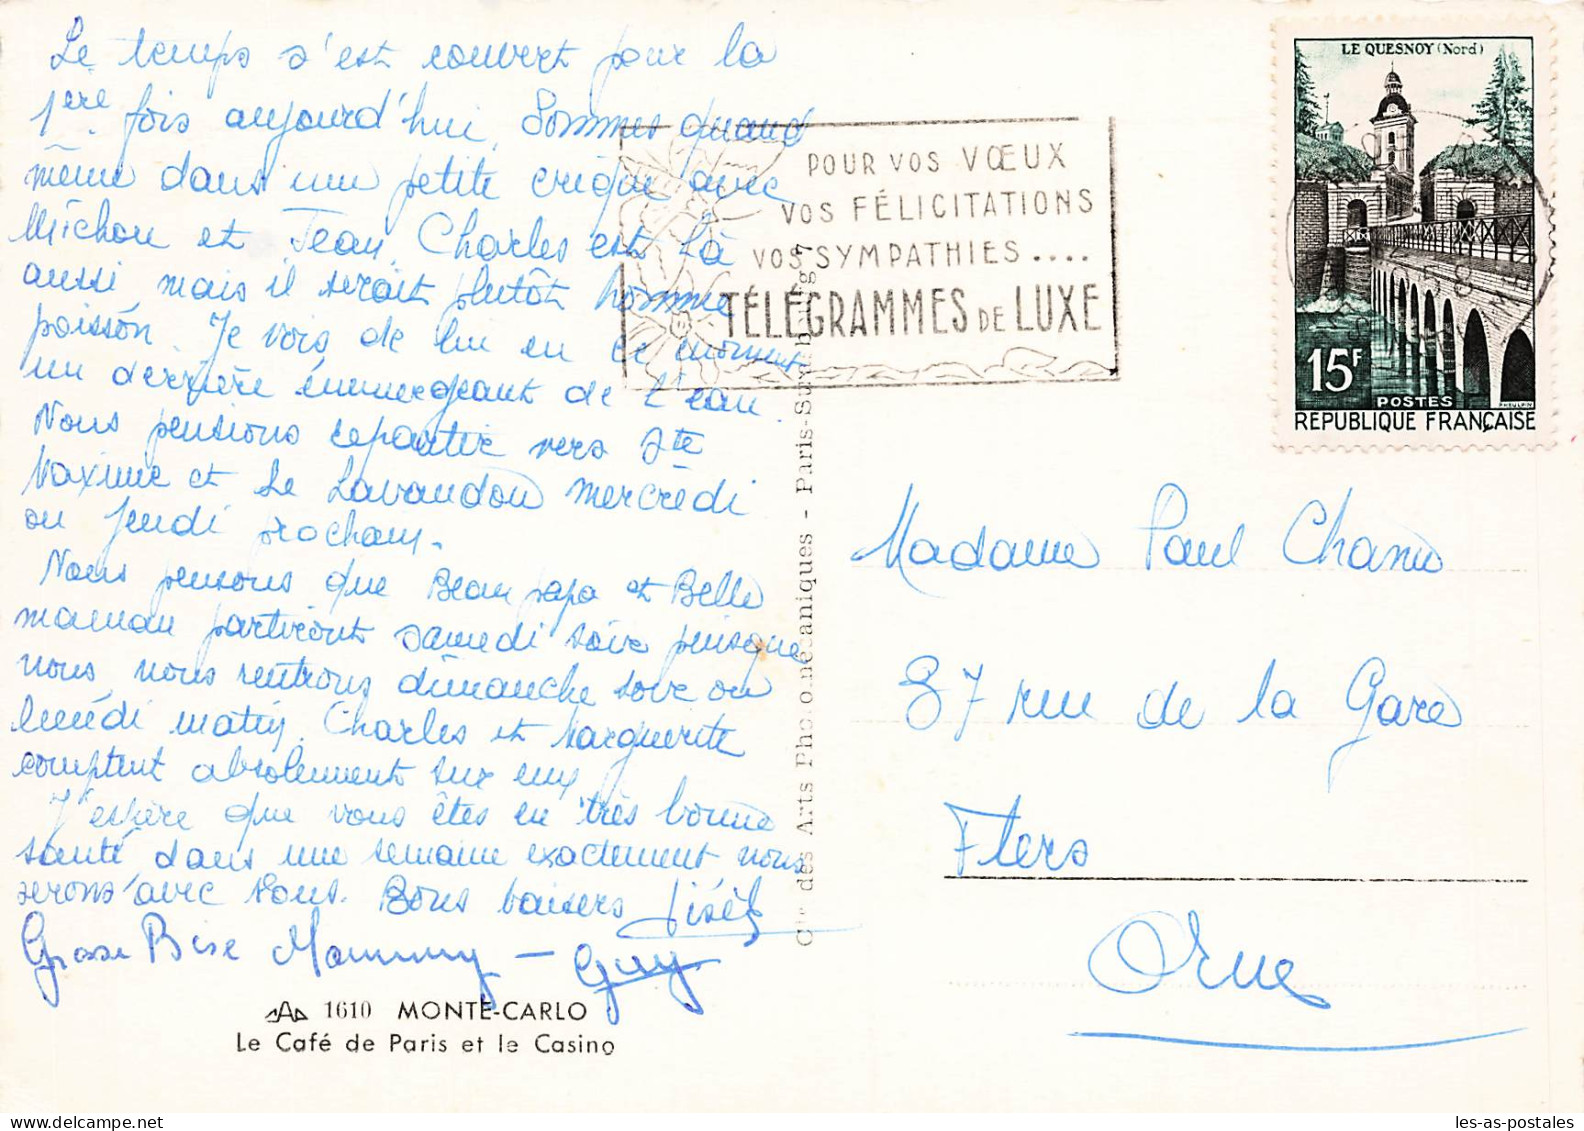 Le temps s'est couvert pour la
1ère fois aujourd'hui. Sommes quand
même dans une petite crique avec
Michou et Jean. Charles est là
aussi, mais il serait plutôt homme
poisson. Je vois de lui en ce moment
un derrière émmergeant de l'eau.
Nous pensions repartir vers Ste
Maxime et Le Lavandou mercredi
ou jeudi prochain.
Nous pensons que Beau papa et Belle
maman partiront samedi soir puisque
nous nous rentrons dimanche soir ou
lundi matin. Charles et Marguerite
comptent absolument sur eux
J'espère que vous êtes en très bonne
santé, dans une semaine exactement nous
serons avec vous. Bons baisers
Grosse Bise Mammy - Guy
1610 MONTE-CARLO
Le Café de Paris et le Casino
Cie des Arts Photomécaniques - Paris-Strasbourg
POUR VOS VŒUX
VOS FÉLICITATIONS
VOS SYMPATHIES ....
TÉLÉGRAMMES DE LUXE
LE QUESNOY (Nord)
15F
POSTES
REPUBLIQUE FRANÇAISE
Madame Paul Chanu
87 rue de la Gare
Flers
Orne
les-as-postales